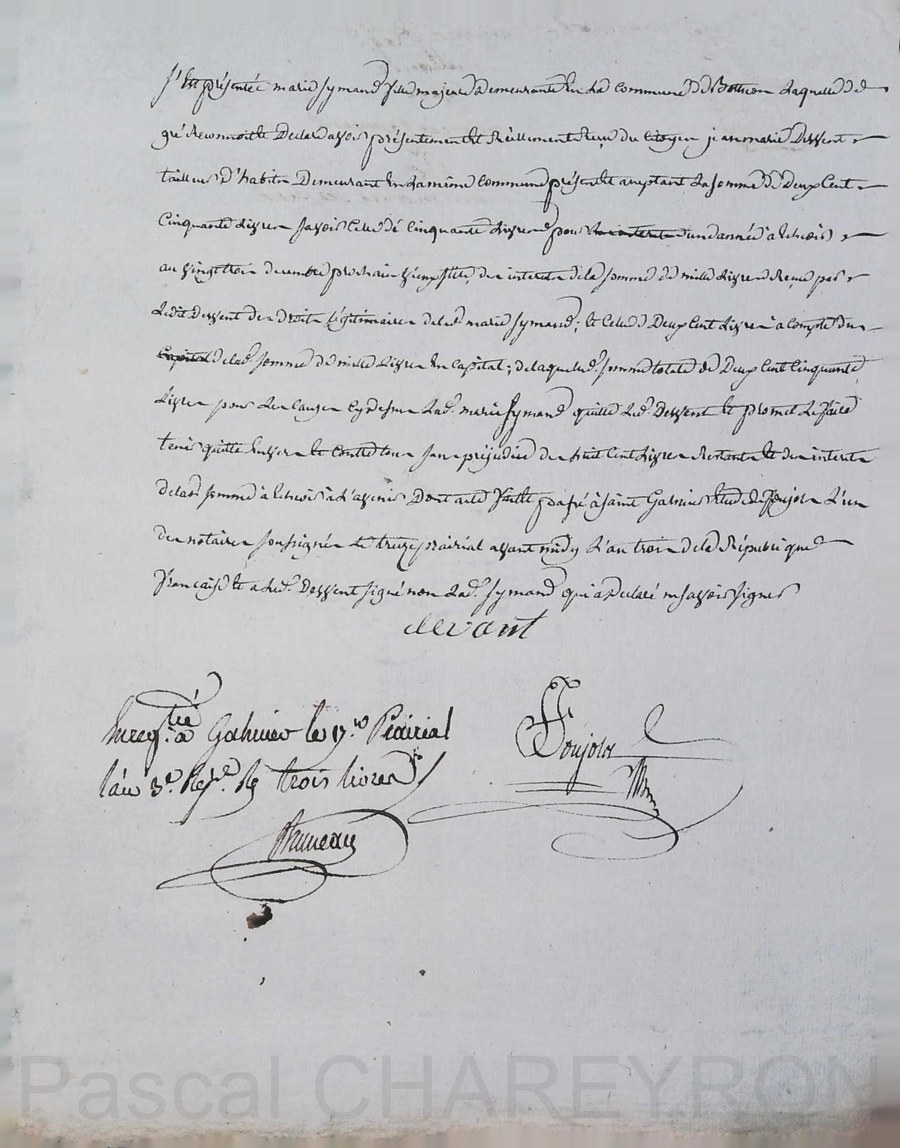 S'est présentée marie Symand fille majeure Demeurante En La Commune de Bothéon Laquelle de
gré Reconnoit et Declare avoir présentement et Réellement Reçu du Citoyen jean marie Dessent
tailleur d'habits Demeurant En La même Commune présent et acceptant La Somme de Deux Cent
Cinquante Livres Savoir Celle de Cinquante Livres pour d'une année à Echeoir
au vingt trois decembre prochain vieux stile, des interets de la Somme de mille Livres Reçue par
Ledit dessent des Droits Légitimaires de lad. marie Symand; et Celle de Deux Cent Livres à Compte du
Capital de lad. Somme de mille Livres En Capital; de laquelle Somme totale de Deux Cent Cinquante
Livres pour Les Causes Cy dessus Lad. marie Symand quitte Led. Dessent et promet Le faire
tenir quitte Envers et Contre tous Sans préjudice des huit Cent Livres Restante et des interets
de lad. Somme à Echeoir à L'avenir Dont acte fait et passé à Saint Galmier Etude de Poujol L'un
des notaires Soussignés Le treize prairial avant midy L'an trois de la République
francaise et a Led. Dessent Signé non Lad. Symand qui a Déclaré ne Savoir Signer
devant
Enregtré à Galmier le 17 Prairial
l'an 3e. Rep. trois livres
Poujol
Bruneau
Pascal CHAREYRON